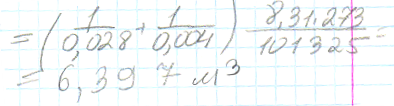 = (1/0,028 + 1/0,004) 8,31.273/101325 =
= 6,397 м³